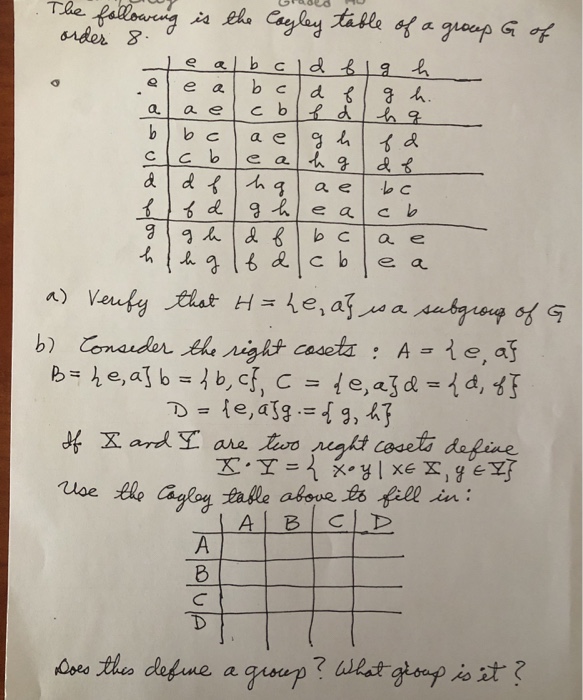 The following is the Cayley table of a group G of
order 8.
e a b c d f g h
e e a b c d f g h.
a a e c b f d h g
b b c a e g h f d
c c b e a h g d f
d d f h g a e b c
f f d g h e a c b
g g h d f b c a e
h h g f d c b e a
a) Verify that H = {e, a} is a subgroup of G
b) Consider the right cosets : A = {e, a}
B = {e, a} b = {b, c}, C = {e, a} d = {d, f}
D = {e, a}g. = {g, h}
If X and Y are two right cosets define
X • Y = { x • y | x ∈ X, y ∈ Y}
Use the Cayley table above to fill in :
A B C D
A
B
C
D
Does this define a group? What group is it?